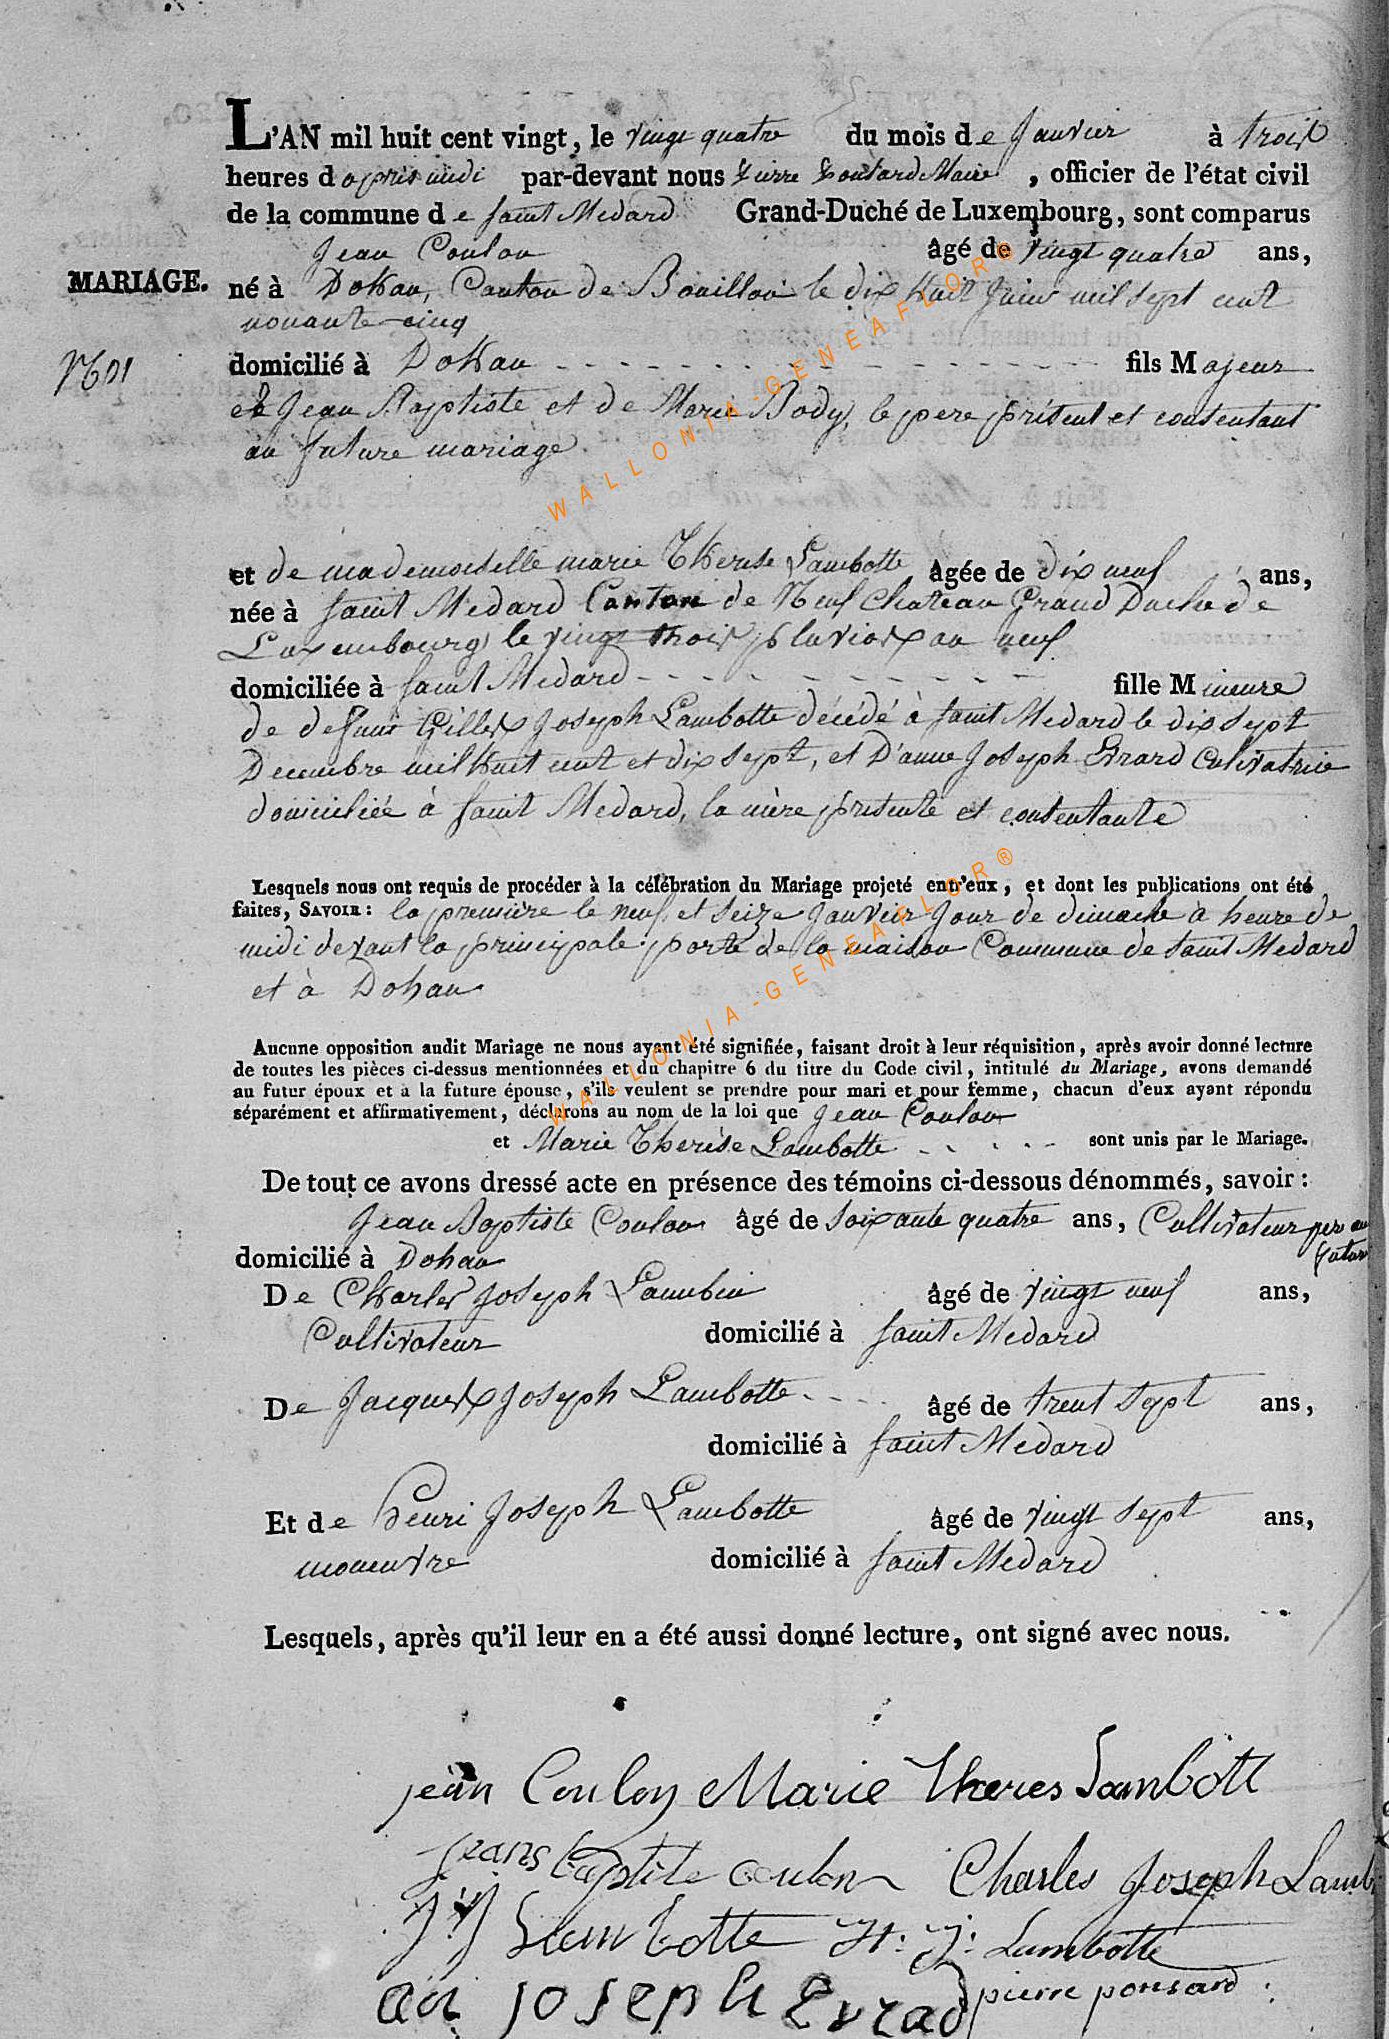 L'AN mil huit cent vingt, le vingt quatre du mois de Janvier à trois
heures d apris midi par-devant nous Pierre Ponsard Maire, officier de l'état civil
de la commune de saint Medard Grand-Duché de Luxembourg, sont comparus
Jean Coulon âgé de vingt quatre ans,
MARIAGE. né à Dohan, Canton de Bouillon le dix huit Juin mil sept cent
nonante-cinq
domicilié à Dohan fils Majeur
de Jean Baptiste et de Marie Body, le pere présent et consentant
au future mariage.
et de mademoiselle marie Therese Lambotte âgée de dix neuf ans,
née à saint Medard Canton de Neuf Chateau Grand Duché de
Luxembourg, le vingt trois pluviose an neuf
domiciliée à saint Medard fille Mineure
de defunt Gilles Joseph Lambotte décédé à saint Medard le dix sept
Decembre mil huit cent et dix sept, et D'anne Joseph Evrard Cultivatrice
domiciliée à saint Medard, la mère présente et consentante
Lesquels nous ont requis de procéder à la célébration du Mariage projeté entr'eux, et dont les publications ont été
faites, SAVOIR: la première le neuf et seize Janvier Jour de dimache à heure de
midi devant la principale porte de la maison Commune de saint Medard
et à Dohan
Aucune opposition audit Mariage ne nous ayant été signifiée, faisant droit à leur réquisition, après avoir donné lecture
de toutes les pièces ci-dessus mentionnées et du chapitre 6 du titre du Code civil, intitulé du Mariage, avons demandé
au futur époux et à la future épouse, s'ils veulent se prendre pour mari et pour femme, chacun d'eux ayant répondu
séparément et affirmativement, déclarons au nom de la loi que Jean Coulon
et Marie Therèse Lambotte sont unis par le Mariage.
De tout ce avons dressé acte en présence des témoins ci-dessous dénommés, savoir:
Jean Baptiste Coulon âgé de soixante quatre ans, Cultivateur pere au
futur
domicilié à Dohan
De Charles Joseph Lambin âgé de vingt neuf ans,
Cultivateur domicilié à saint Medard
De Jacques Joseph Lambotte âgé de trent sept ans,
domicilié à saint Medard
Et de henri Joseph Lambotte âgé de vingt sept ans,
domicilié à saint Medard
Lesquels, après qu'il leur en a été aussi donné lecture, ont signé avec nous.
jean Coulon Marie Theres Lambott
jeans baptiste coulon Charles Joseph Lambi
J J Lambotte H: J: Lambotte
an joseph Evrad pierre ponsard
WALLONIA-GENEAFLOR®
WALLONIA-GENEAFLOR®